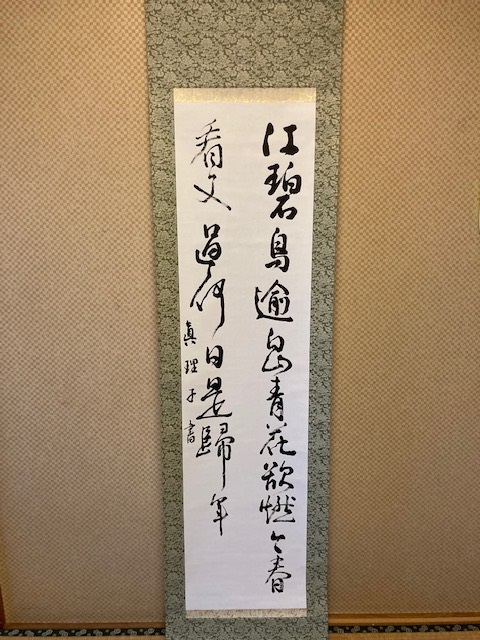 江碧鳥逾白山青花欲燃今春
看又過何日是歸年
眞理子書